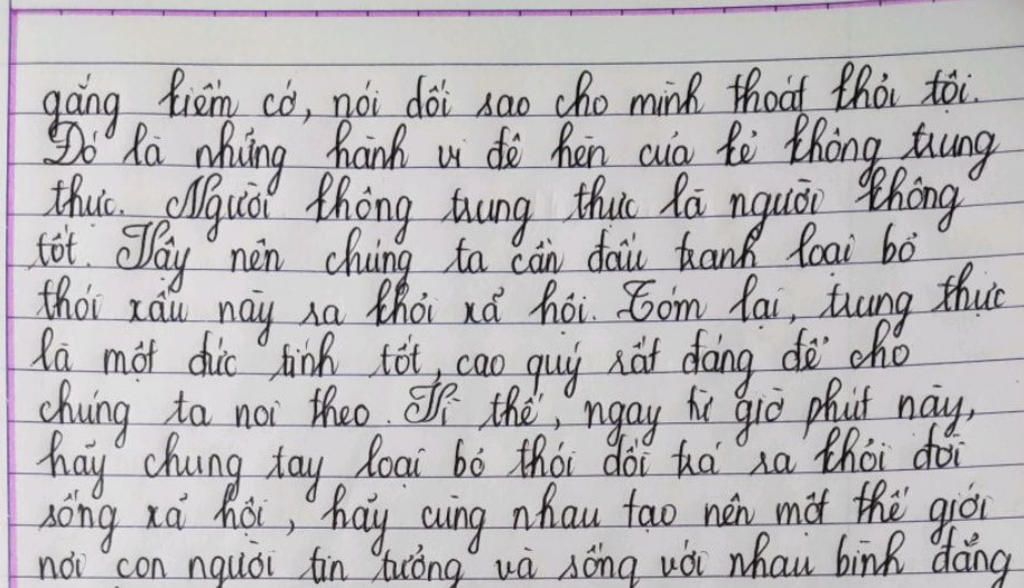 gắng kiếm cớ, nói dối sao cho mình thoát khỏi tội.
Đó là những hành vi đê hèn của kẻ không trung
thực. Người không trung thực là người không
tốt. Vậy nên chúng ta cần đấu tranh loại bỏ
thói xấu này ra khỏi xã hội. Tóm lại, trung thực
là một đức tính tốt, cao quý rất đáng để cho
chúng ta noi theo. Vì thế, ngay từ giờ phút này,
hãy chung tay loại bỏ thói dối trá ra khỏi đời
sống xã hội, hãy cùng nhau tạo nên một thế giới
nơi con người tin tưởng và sống với nhau bình đẳng